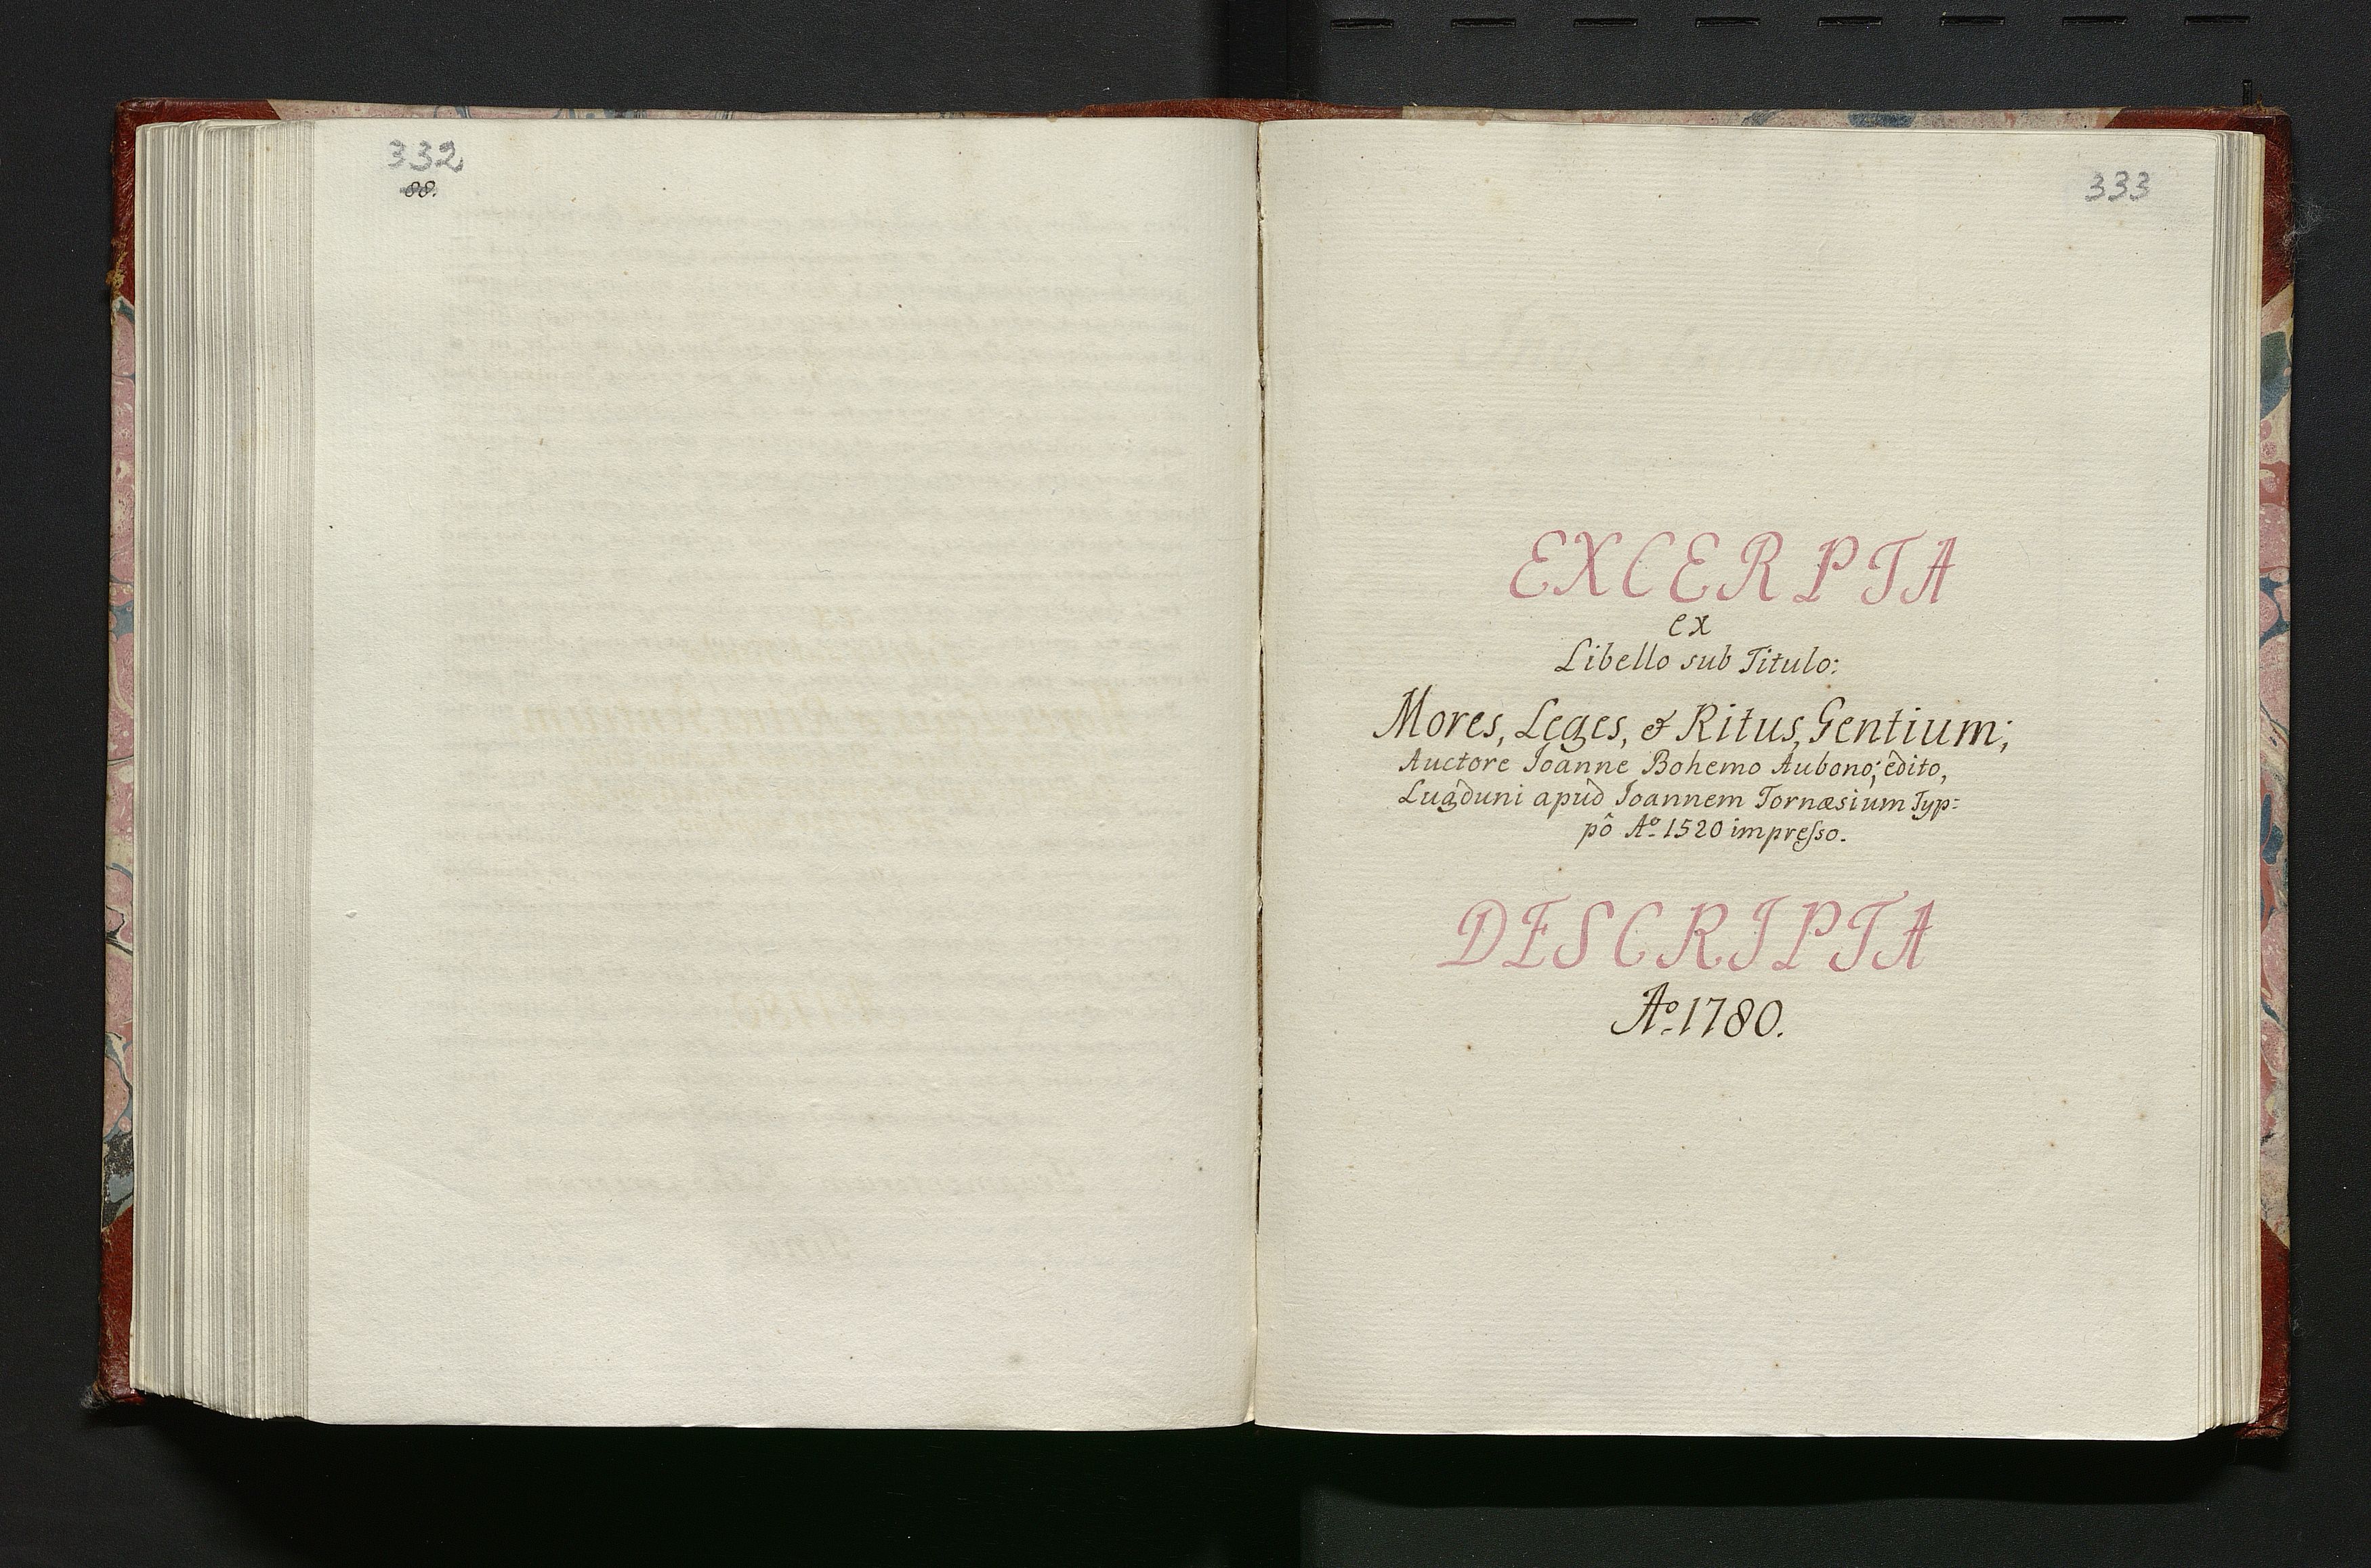 332
88.
333
EXCERPTA
ex
Libello sub Titulo:
Mores, Leges, & Ritus, Gentium;
Auctore Ioanne Bohemo Aubono; edito,
Lugduni apud Ioannem Tornæsium Typ:
pô Aº. 1520 impreſso.
DESCRIPTA
Aº. 1780.